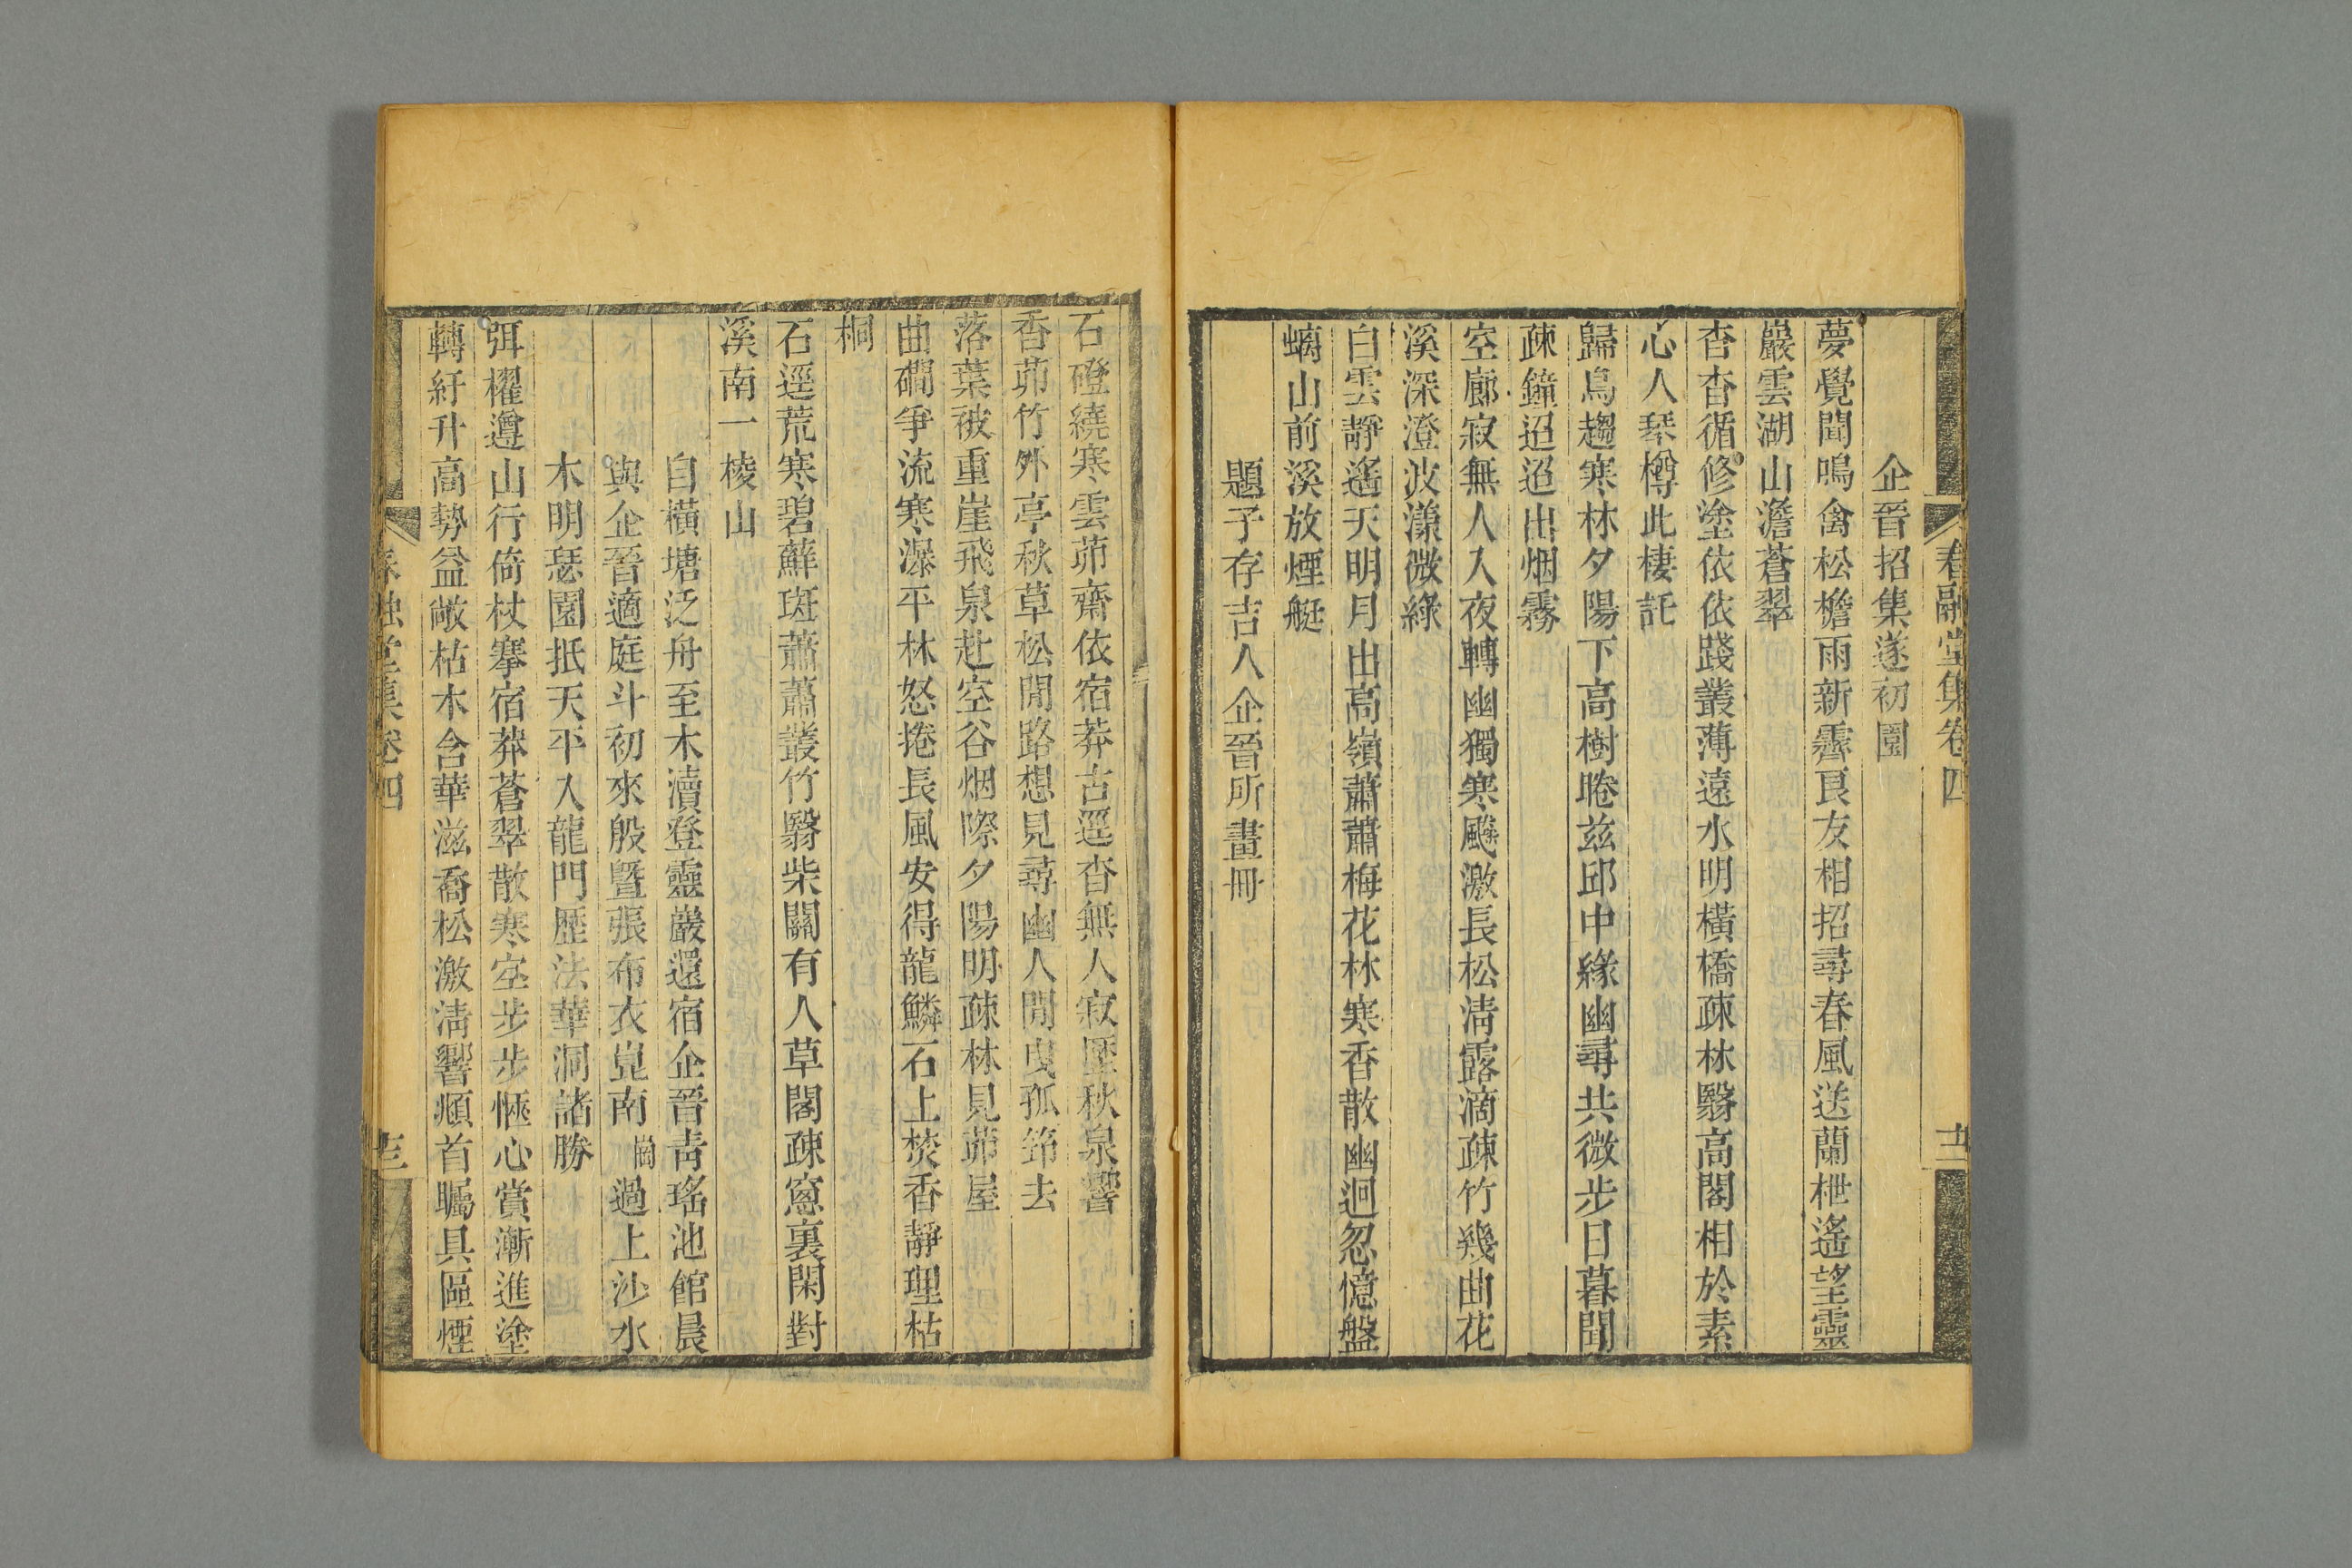 春融堂集卷四
企晉招集遂初園
夢覺聞鳴禽松檐雨新霽良友相招尋春風送蘭枻遙望靈
巖雲湖山澹蒼翠
杳杳循修塗依依踐叢薄遠水明橫橋疎林翳高閣相於素
心人琴樽此棲託
歸鳥趨寒林夕陽下高樹睠茲邱中緣幽尋共微步日暮聞
疎鐘迢迢出烟霧
空廊寂無人入夜轉幽獨寒飈激長松清露滴疎竹幾曲花
溪深澄波漾微綠
白雲靜遙天明月出高嶺蕭蕭梅花林寒香散幽迥忽憶盤
螭山前溪放煙艇
題子存吉人企晉所畫冊
石磴繞寒雲茆齋依宿莽古逕杳無人寂歷秋泉響
香茆竹外亭秋草松閒路想見尋幽人閒曳孤筇去
落葉被重崖飛泉赴空谷烟際夕陽明疎林見茆屋
曲磵爭流寒瀑平林怒捲長風安得龍鱗石上焚香靜理枯
桐
石逕荒寒碧蘚斑蕭蕭叢竹翳柴關有人草閣疎窻裏閑對
溪南一棱山
自橫塘泛舟至木瀆登靈巖還宿企晉靑瑤池館晨
與企晉適庭斗初來殷曁張布衣崑南 崗 過上沙水
木明瑟園抵天平入龍門歷法華洞諸勝
弭櫂遵山行倚杖搴宿莽蒼翠散寒空步步愜心賞漸進塗
轉紆升高勢益敞枯木含華滋喬松激淸響頫首矚具區煙
春融堂集卷四